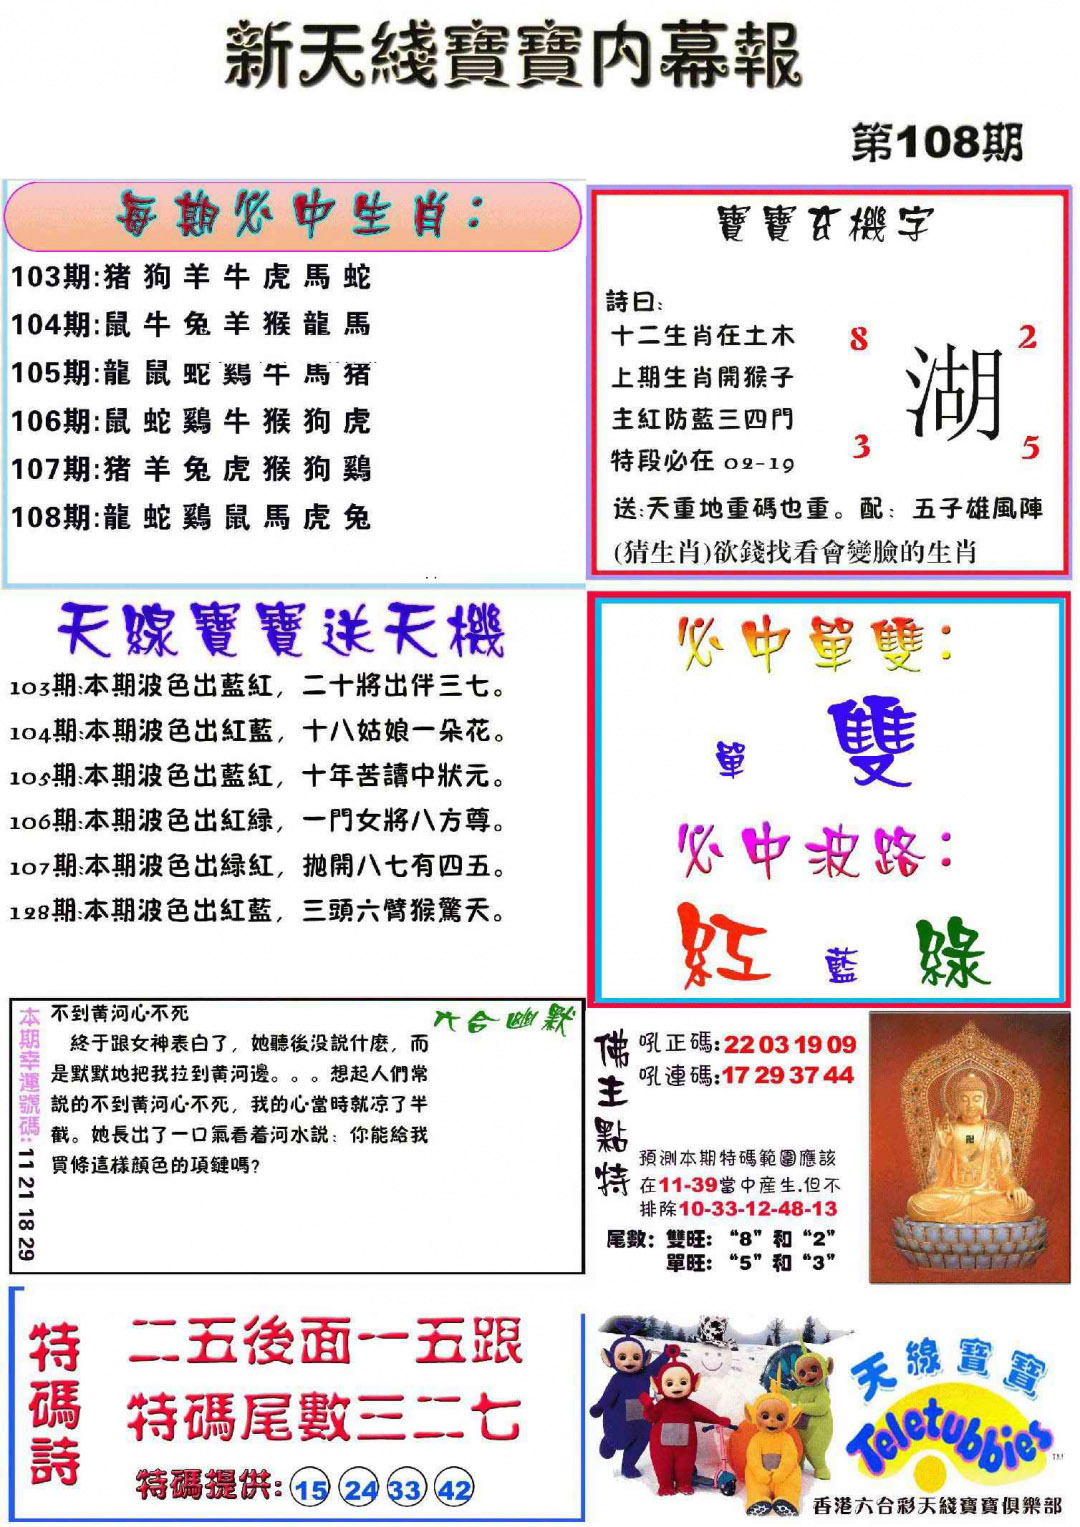 新天綫寶寶内幕報
第108期
每期必中生肖：
103期:猪 狗 羊 牛 虎 馬 蛇
104期:鼠 牛 兔 羊 猴 龍 馬
105期:龍 鼠 蛇 鷄 牛 馬 猪
106期:鼠 蛇 鷄 牛 猴 狗 虎
107期:猪 羊 兔 虎 猴 狗 鷄
108期:龍 蛇 鷄 鼠 馬 虎 兔
寶寶玄機字
詩曰:
十二生肖在土木
上期生肖開猴子
主紅防藍三四門
特段必在 02-19
8
2
湖
3
5
送:天重地重碼也重。配：五子雄風陣
(猜生肖)欲錢找看會變臉的生肖
天線寶寶送天機
103期:本期波色出藍紅，二十將出伴三七。
104期:本期波色出紅藍，十八姑娘一朵花。
105期:本期波色出藍紅，十年苦讀中狀元。
106期:本期波色出紅緑，一門女將八方尊。
107期:本期波色出緑紅，拋開八七有四五。
128期:本期波色出紅藍，三頭六臂猴驚天。
必中單雙：
單 雙
必中波路：
紅 藍 綠
本期幸運號碼: 11 21 18 29
六合幽默
不到黄河心不死
終于跟女神表白了，她聽後没説什麽，而
是默默地把我拉到黄河邊。。。想起人們常
説的不到黄河心不死，我的心當時就凉了半
截。她長出了一口氣看着河水説：你能給我
買條這樣顔色的項鏈嗎?
佛主點特
吼正碼:22 03 19 09
吼連碼:17 29 37 44
預測本期特碼範圍應該
在11-39當中産生.但不
排除10-33-12-48-13
尾數：雙旺：“8”和“2”
單旺：“5”和“3”
特碼詩
二五後面一五跟
特碼尾數三二七
特碼提供: 15 24 33 42
天線寶寶
Teletubbies
TM
香港六合彩天綫寶寶俱樂部